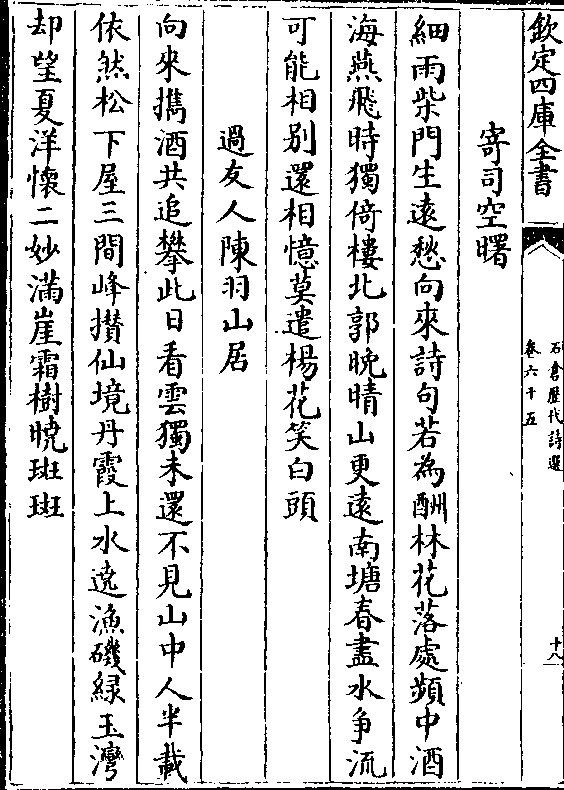 欽定四庫全書
石倉歷代詩選
卷六十五
十八
寄司空曙
細雨柴門生遠愁向來詩句若為酬林花落處頻中酒
海燕飛時獨倚樓北郭晚晴山更遠南塘春盡水爭流
可能相別還相憶莫遣楊花笑白頭
過友人陳羽山居
向來攜酒共追攀此日看雲獨未還不見山中人半載
依然松下屋三間峰攢仙境丹霞上水遶漁磯綠玉灣
却望夏洋懷二妙滿崖霜樹曉斑斑